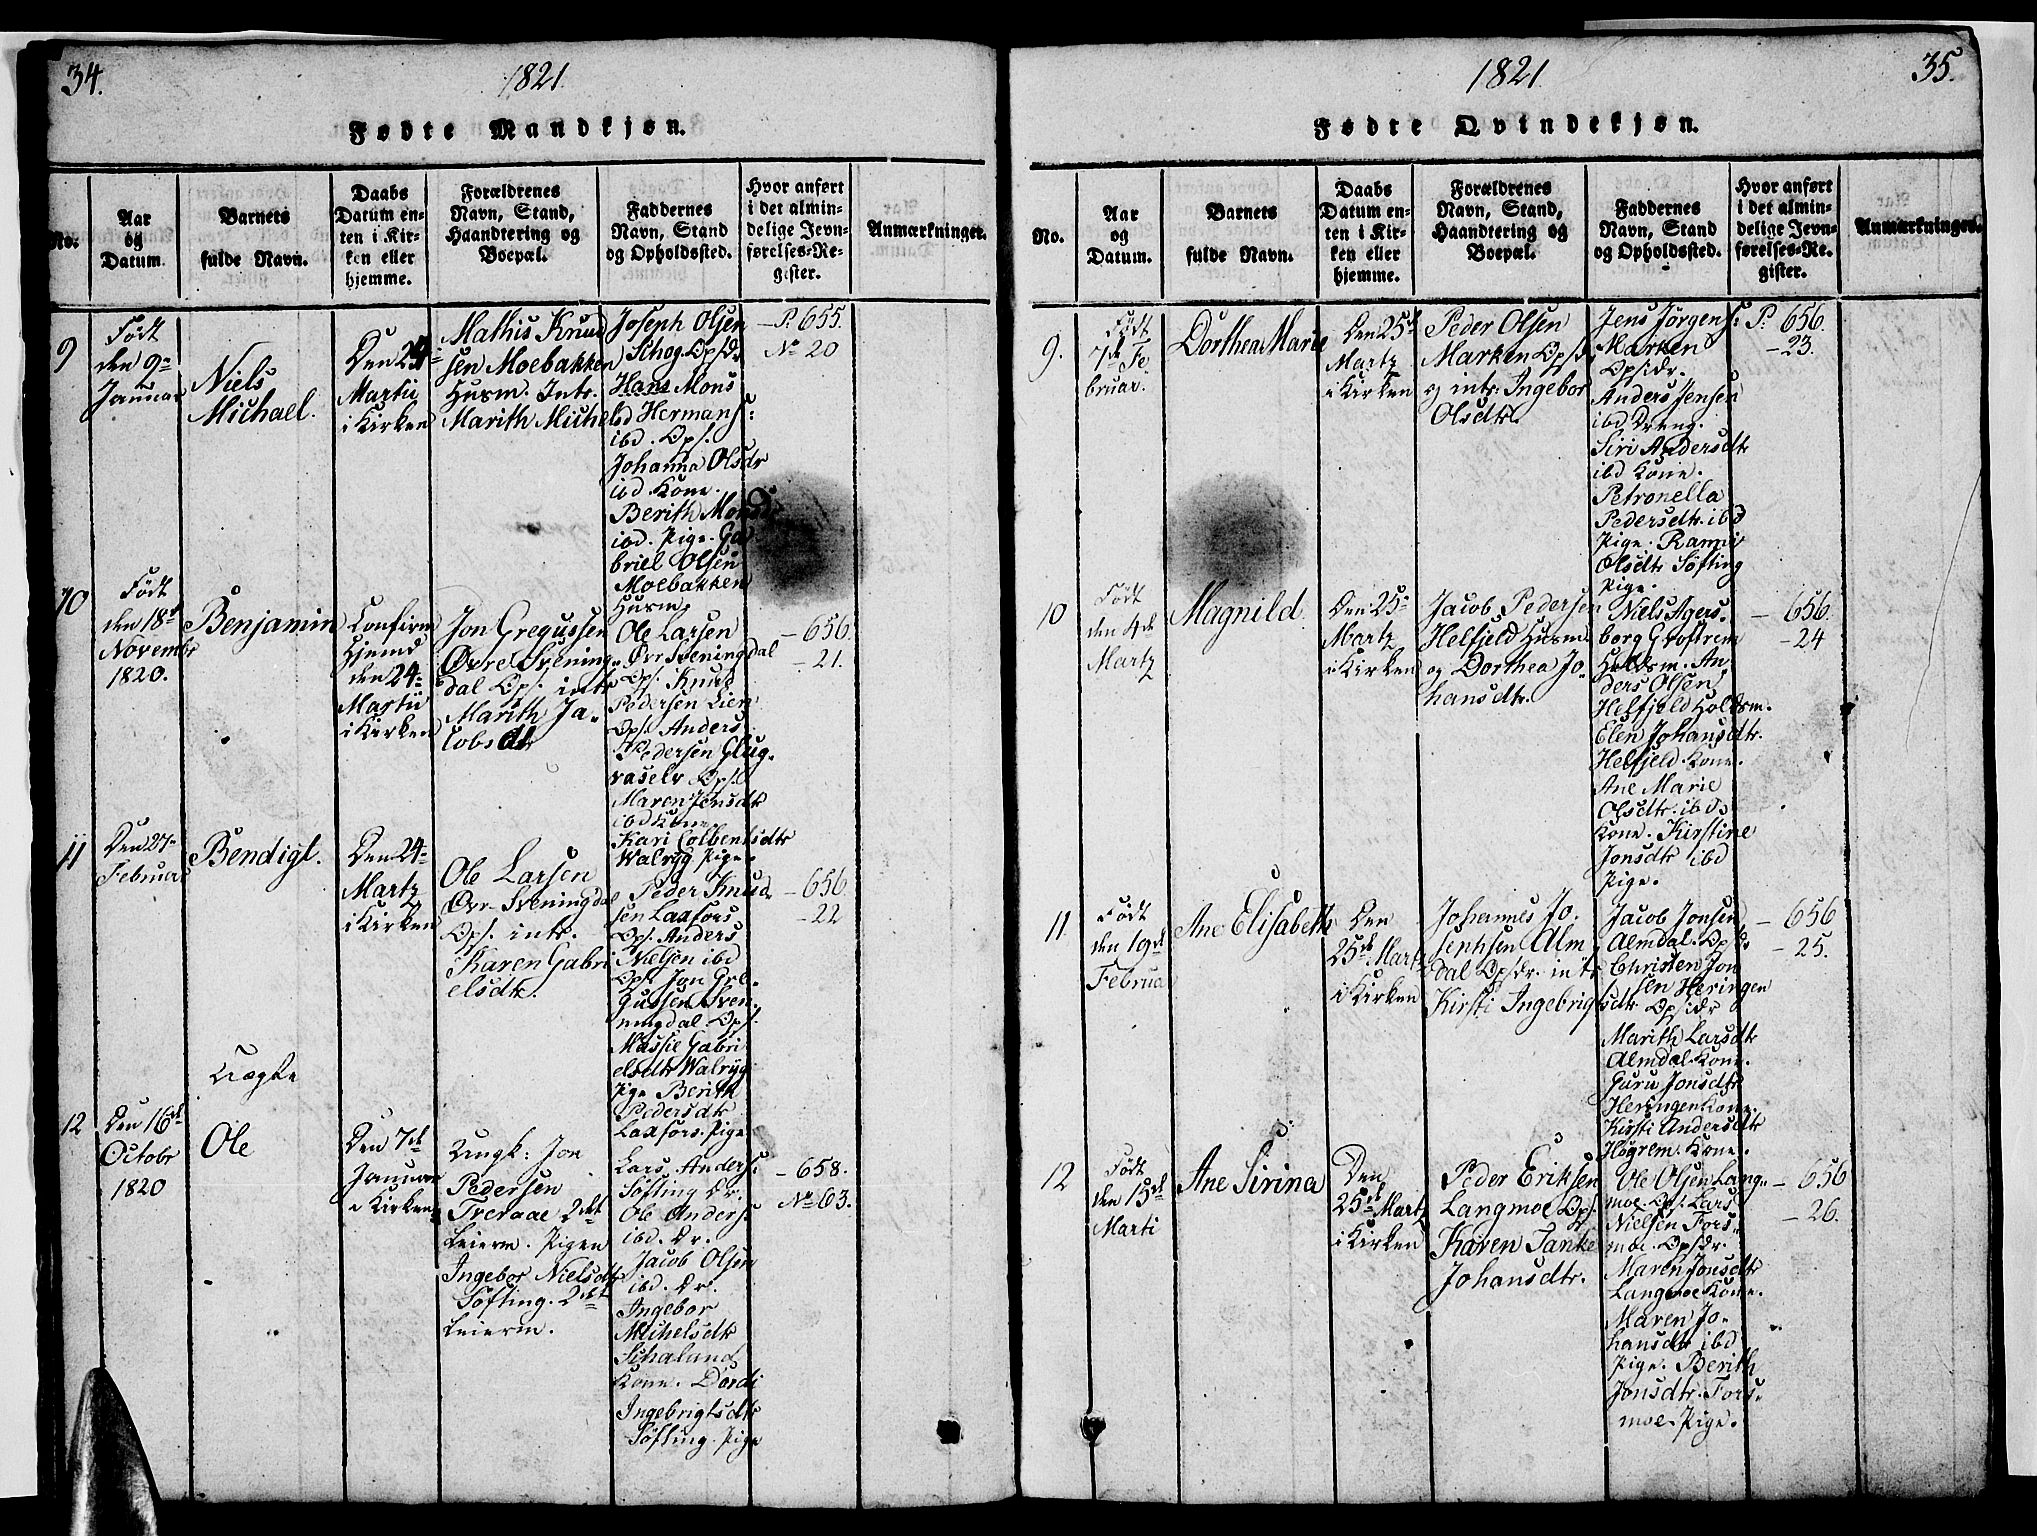 34.
1821.
Fødte Mandkjøn.
No.
Aar
og
Datum.
Barnets
fulde Navn.
Daabs
Datum en-
ten i Kir-
ken eller
hjemme.
Forældrenes
Navn, Stand,
Haandtering og
Boepæl.
Faddernes
Navn, Stand
og Opholdssted.
Hvor anført
i det almin-
delige Jevn-
førelses-Re-
gister.
Anmærkninger.
9
Født
den 9-
Januar
Niels
Michael.
Den 24
Martii
i Kirken
Mathis Knud
sen Moebakken
Huusm. Intr.
Marith Michel
Joseph Olsen
Schog Ops.
Hans Mons
ibd Hermans:
ibd. Ops.
Johanna Olsdr
ibd. Kone.
Berith Monsd
ibd. Pige. Ga
briel Olsen
Moebakken
Huusm.
P. 655.
No 20
10
Født
den 18d
Novembr
1820.
Benjamin
Confirm
Hjemd
den 24-
Martii
i Kirken
Jon Gregussen
Øvre Svening-
dal Ops. intr
Marith Ja-
cobsdtr
Ole Larsen
Øvr Sveningdal
Ops. Knud
Pedersen Lien
Ops. Anders
Pedersen Glug-
vaselv Ops.
Maren Jensdtr
ibd Kone.
Kari Colbentsdtr
Walryg Pige.
- 656.
- 21.
11
Den 27-
Februar
Bendigt.
Den 24-
Martz
i Kirken
Ole Larsen
Øvr Sveningdal
Ops. intr.
Karen Gabri
elsdtr.
Peder Knud-
sen Laxfors
Ops. Anders
Nielsen ibd
Ops. Jon Gre-
gussen Sven-
ningdal. Ops.
Massie Gabri
elsdtr Walryg
Pige Berith
Pedersdtr
Laxfors. Pige
- 656.
- 22
Uægte
12
Den 16d
Octobr
1820
Ole
Den 7d
Januar
i Kirken
Ungk: Jon
Pedersen
Tveraae 2det
Leierm. Pigen
Ingebor Nielsdtr
Søfting. 2det
Leierm.
Lars Anders:
Søfting Dr.
Ole Anders:
ibd. Dr.
Jacob Olsen
ibd. Dr.
Ingebor
Michelsdtr
Schaland
Kone. Dordi
Ingebrigtsdtr
Søfting. Pige
- 658.
No 63.
35.
1821.
Fødte Qvindekjøn.
No.
Aar
og
Datum.
Barnets
fulde Navn.
Daabs
Datum en-
ten i Kir-
ken eller
hjemme.
Forældrenes
Navn, Stand,
Haandtering og
Boepæl.
Faddernes
Navn, Stand
og Opholdssted.
Hvor anført
i det almin-
delige Jevn-
førelses-Re-
gister.
Anmærkninger.
9.
Født
7d Fe
bruar.
Dorthea Marie
Den 25d
Martz
i Kirken
Peder Olsen
Marken Ops.
og intr. Ingebor
Olsdtr.
Jens Jørgens:
Marken
Opsidr.
Anders Jensen
ibd Dreng.
Siri Andersdtr
ibd Kone.
Petronella
Pedersdtr. ibd
Pige.
Olsdtr Søfting
Pige.
P. 656.
- 23.
10
Født
den 4d
Martz
Magnild.
Den 25-
Martz
i Kirken
Jacob Pedersen
Helfjeld Huusm.
og Dorthea Jo-
hansdtr.
Niels Agers-
borg
Huusm. An-
ders Olsen
Helfjeld Holdsm.
Elen Johansdtr.
Helfjeld. Kone.
Ane Marie
Olsdtr. ibds
Kone. Kirstine
Jonsdtr ibd
Pige.
- 656.
- 24
11
Født
den 19d
Februar
Ane Elisabeth
Den
25d Martz
i Kirken
Johannes Jo-
senhsen Alm
dal Opsdr. intr
Kirsti Ingebrigtsdtr
Jacob Jonsen
Almdal. Ops.
Christen Jon
sen Heringen
Opsidr
Marith Larsdtr
Almdal. Kone.
Guru Jonsdtr
Heringen Kone.
Kirsti Andersdtr
Høgrem. Kone.
- 656
- 25.
12
Født
den 15d
Marti
Ane Sirina
Den
25d Martz
i Kirken
Peder Eriksen
Langmoe Ops.
Karen Tanke
Johansdtr.
Ole Olsen Lang-
moe Ops. Lars
Nielsen Fors-
moe. Opsdr.
Maren Jonsdtr
Langmoe Kone.
Maren Jo-
hansdtr ibd
Pige. Berith
Jonsdtr. Fors-
moe. Pige.
- 656
- 26.